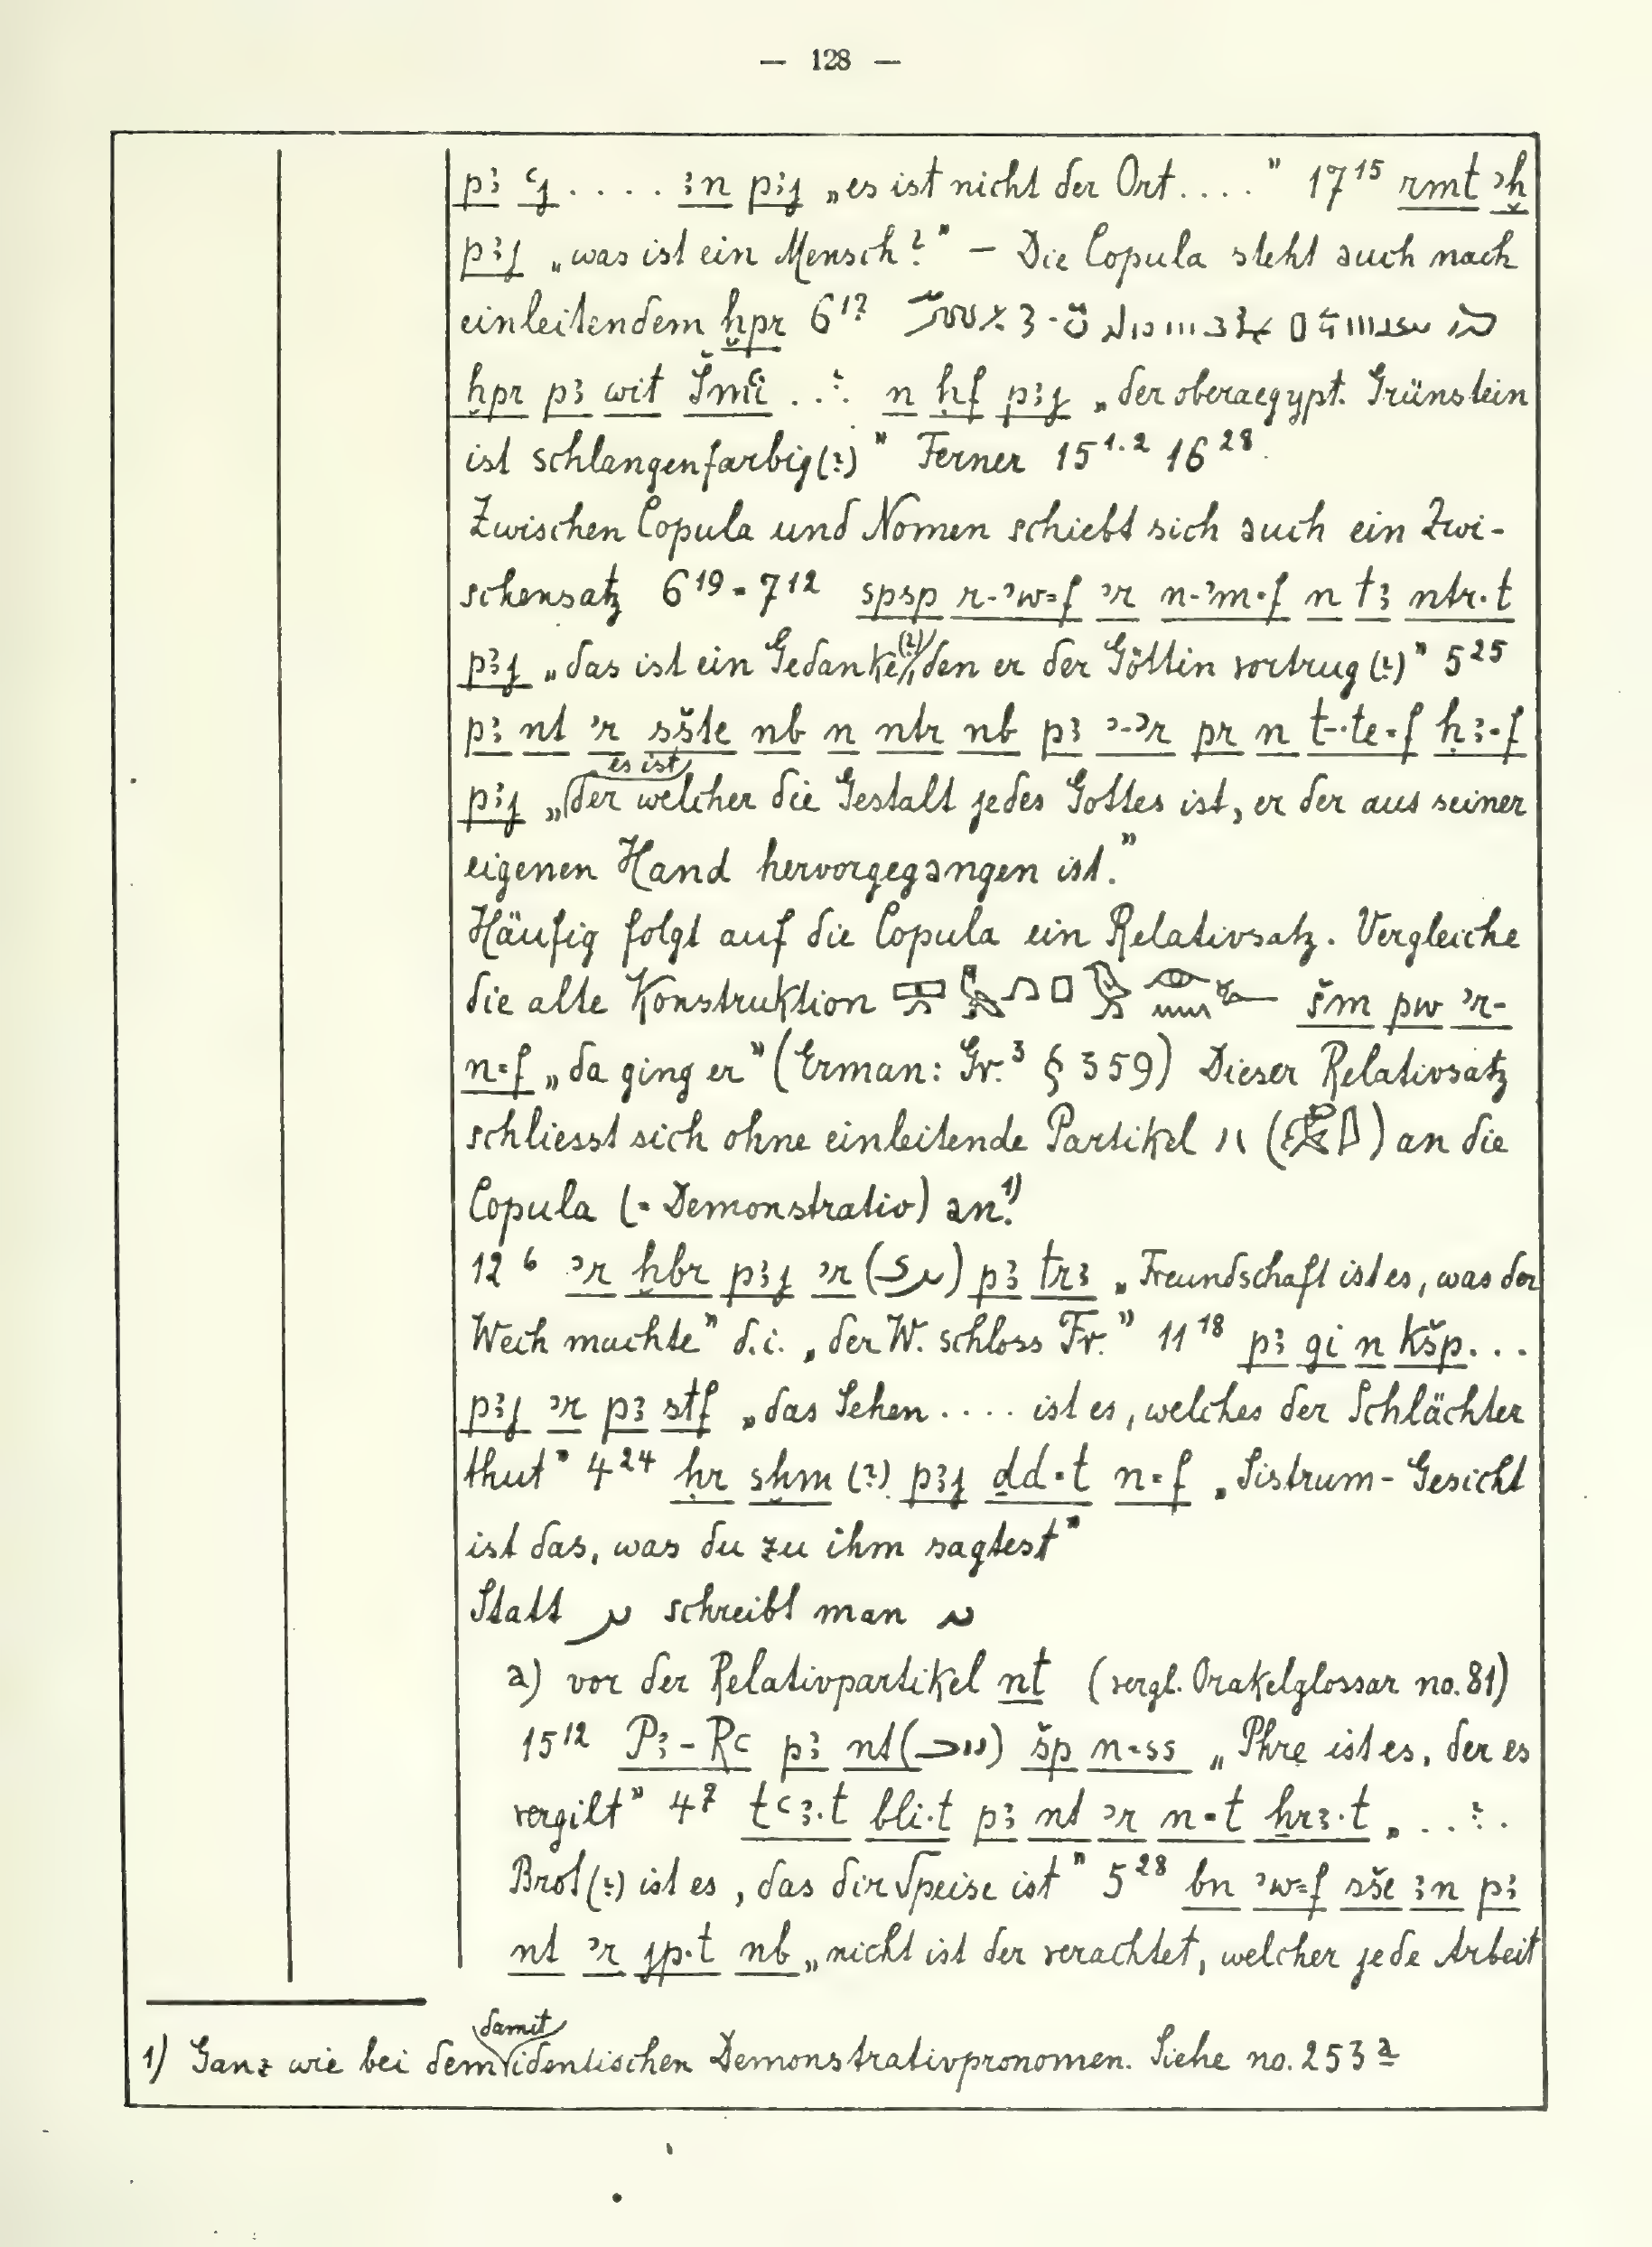 — 128 —
pꜣ ꜥj . . . . ꜣn pꜣj „es ist nicht der Ort . . . . " 17¹⁵ rmt ʾḫ
pꜣj „was ist ein Mensch?" – Die Copula steht auch nach
einleitendem ḫpr 6¹?
ḫpr pꜣ wit Šmꜥi . . . n ḥf pꜣj „der oberaegypt. Grünstein
ist schlangenfarbig(?)" Ferner 15¹·² 16²⁸.
Zwischen Copula und Nomen schiebt sich auch ein Zwi-
schensatz 6¹⁹ = 7¹² spsp r-ʾw=f ʾr n-ʾm=f n tꜣ ntr·t
pꜣj „das ist ein Gedanke(?), den er der Göttin vortrug(?)" 5²⁵
pꜣ nt ʾr sšte nb n ntr nb pꜣ ʾ-ʾr pr n t-·te=f ḥꜣ=f
pꜣj „es ist der welcher die Gestalt jedes Gottes ist, er der aus seiner
eigenen Hand hervorgegangen ist."
Häufig folgt auf die Copula ein Relativsatz. Vergleiche
die alte Konstruktion 𓈙𓅓𓂻𓊪𓅱𓁹𓈖𓆑 šm pw ʾr-
n=f „da ging er" (Erman: Gr.³ § 359) Dieser Relativsatz
schliesst sich ohne einleitende Partikel an die
Copula (= Demonstrativ) an.¹⁾
12⁶ ʾr ḫbr pꜣj ʾr pꜣ trꜣ „Freundschaft ist es, was der
Weih machte" d.i. „der W. schloss Fr." 11¹⁸ pꜣ gi n kšp . . .
pꜣj ʾr pꜣ stf „das Sehen . . . . ist es, welches der Schlächter
thut" 4²⁴ ḥr sḫm (?) pꜣj dd·t n=f „Sistrum-Gesicht
ist das, was du zu ihm sagtest"
Statt schreibt man
a) vor der Relativpartikel nt (vergl. Orakelglossar no. 81)
15¹² Pꜣ-Rꜥ pꜣ nt šp n=ss „Phre ist es, der es
vergilt" 4⁷ tꜥꜣ·t bli·t pꜣ nt ʾr n=t ḥrꜣ·t „ . . . .
Brot(?) ist es, das dir Speise ist" 5²⁸ bn ʾw=f sše ꜣn pꜣ
nt ʾr jp·t nb „nicht ist der verachtet, welcher jede Arbeit
1) Ganz wie bei dem damit identischen Demonstrativpronomen. Siehe no. 253 a